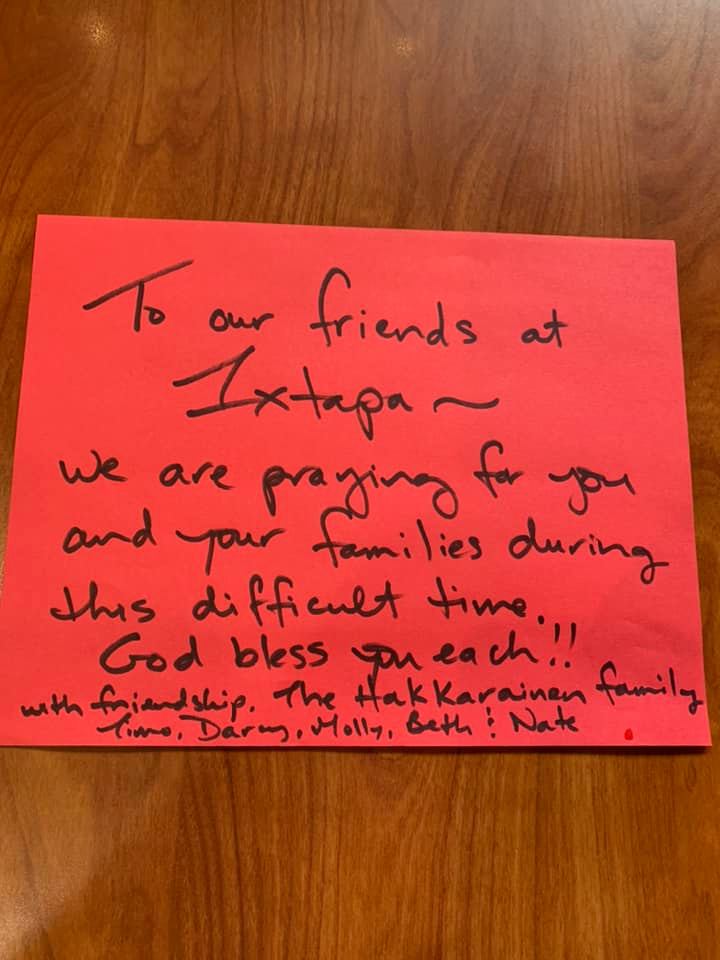 To our friends at
Ixtapa ~
we are praying for you
and your families during
this difficult time.
God bless you each!!
with friendship, The Hakkarainen family
Timo, Darcy, Molly, Beth & Nate